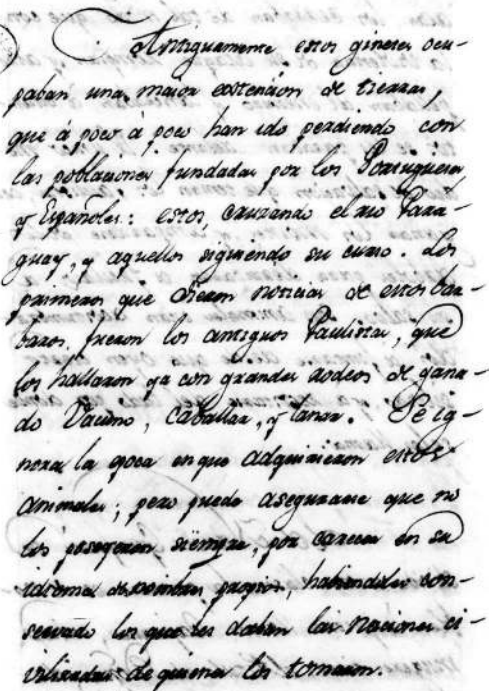 Antiguamente estos ginetes ocu-
paban una maior extencion de tierras,
que á poco á poco han ido perdiendo con
las poblaciones fundadas por los Portugueses
y Españoles: estos, cruzando el rio Para-
guay, y aquellos siguiendo su curso. Los
primeros que dieron noticias de estos bar-
baros fueron los antiguos Paulistas, que
los hallaron ya con grandes rodeos de gana-
do Vacuno, caballar, y lanar. Se ig-
nora la epoca en que adquirieron estos
animales; pero puede asegurarse que no
los poseyeron siempre, por carecer en su
idioma de nombres propios, habiendoles con-
servado los que les daban las Naciones ci-
vilizadas de quienes los tomaron.